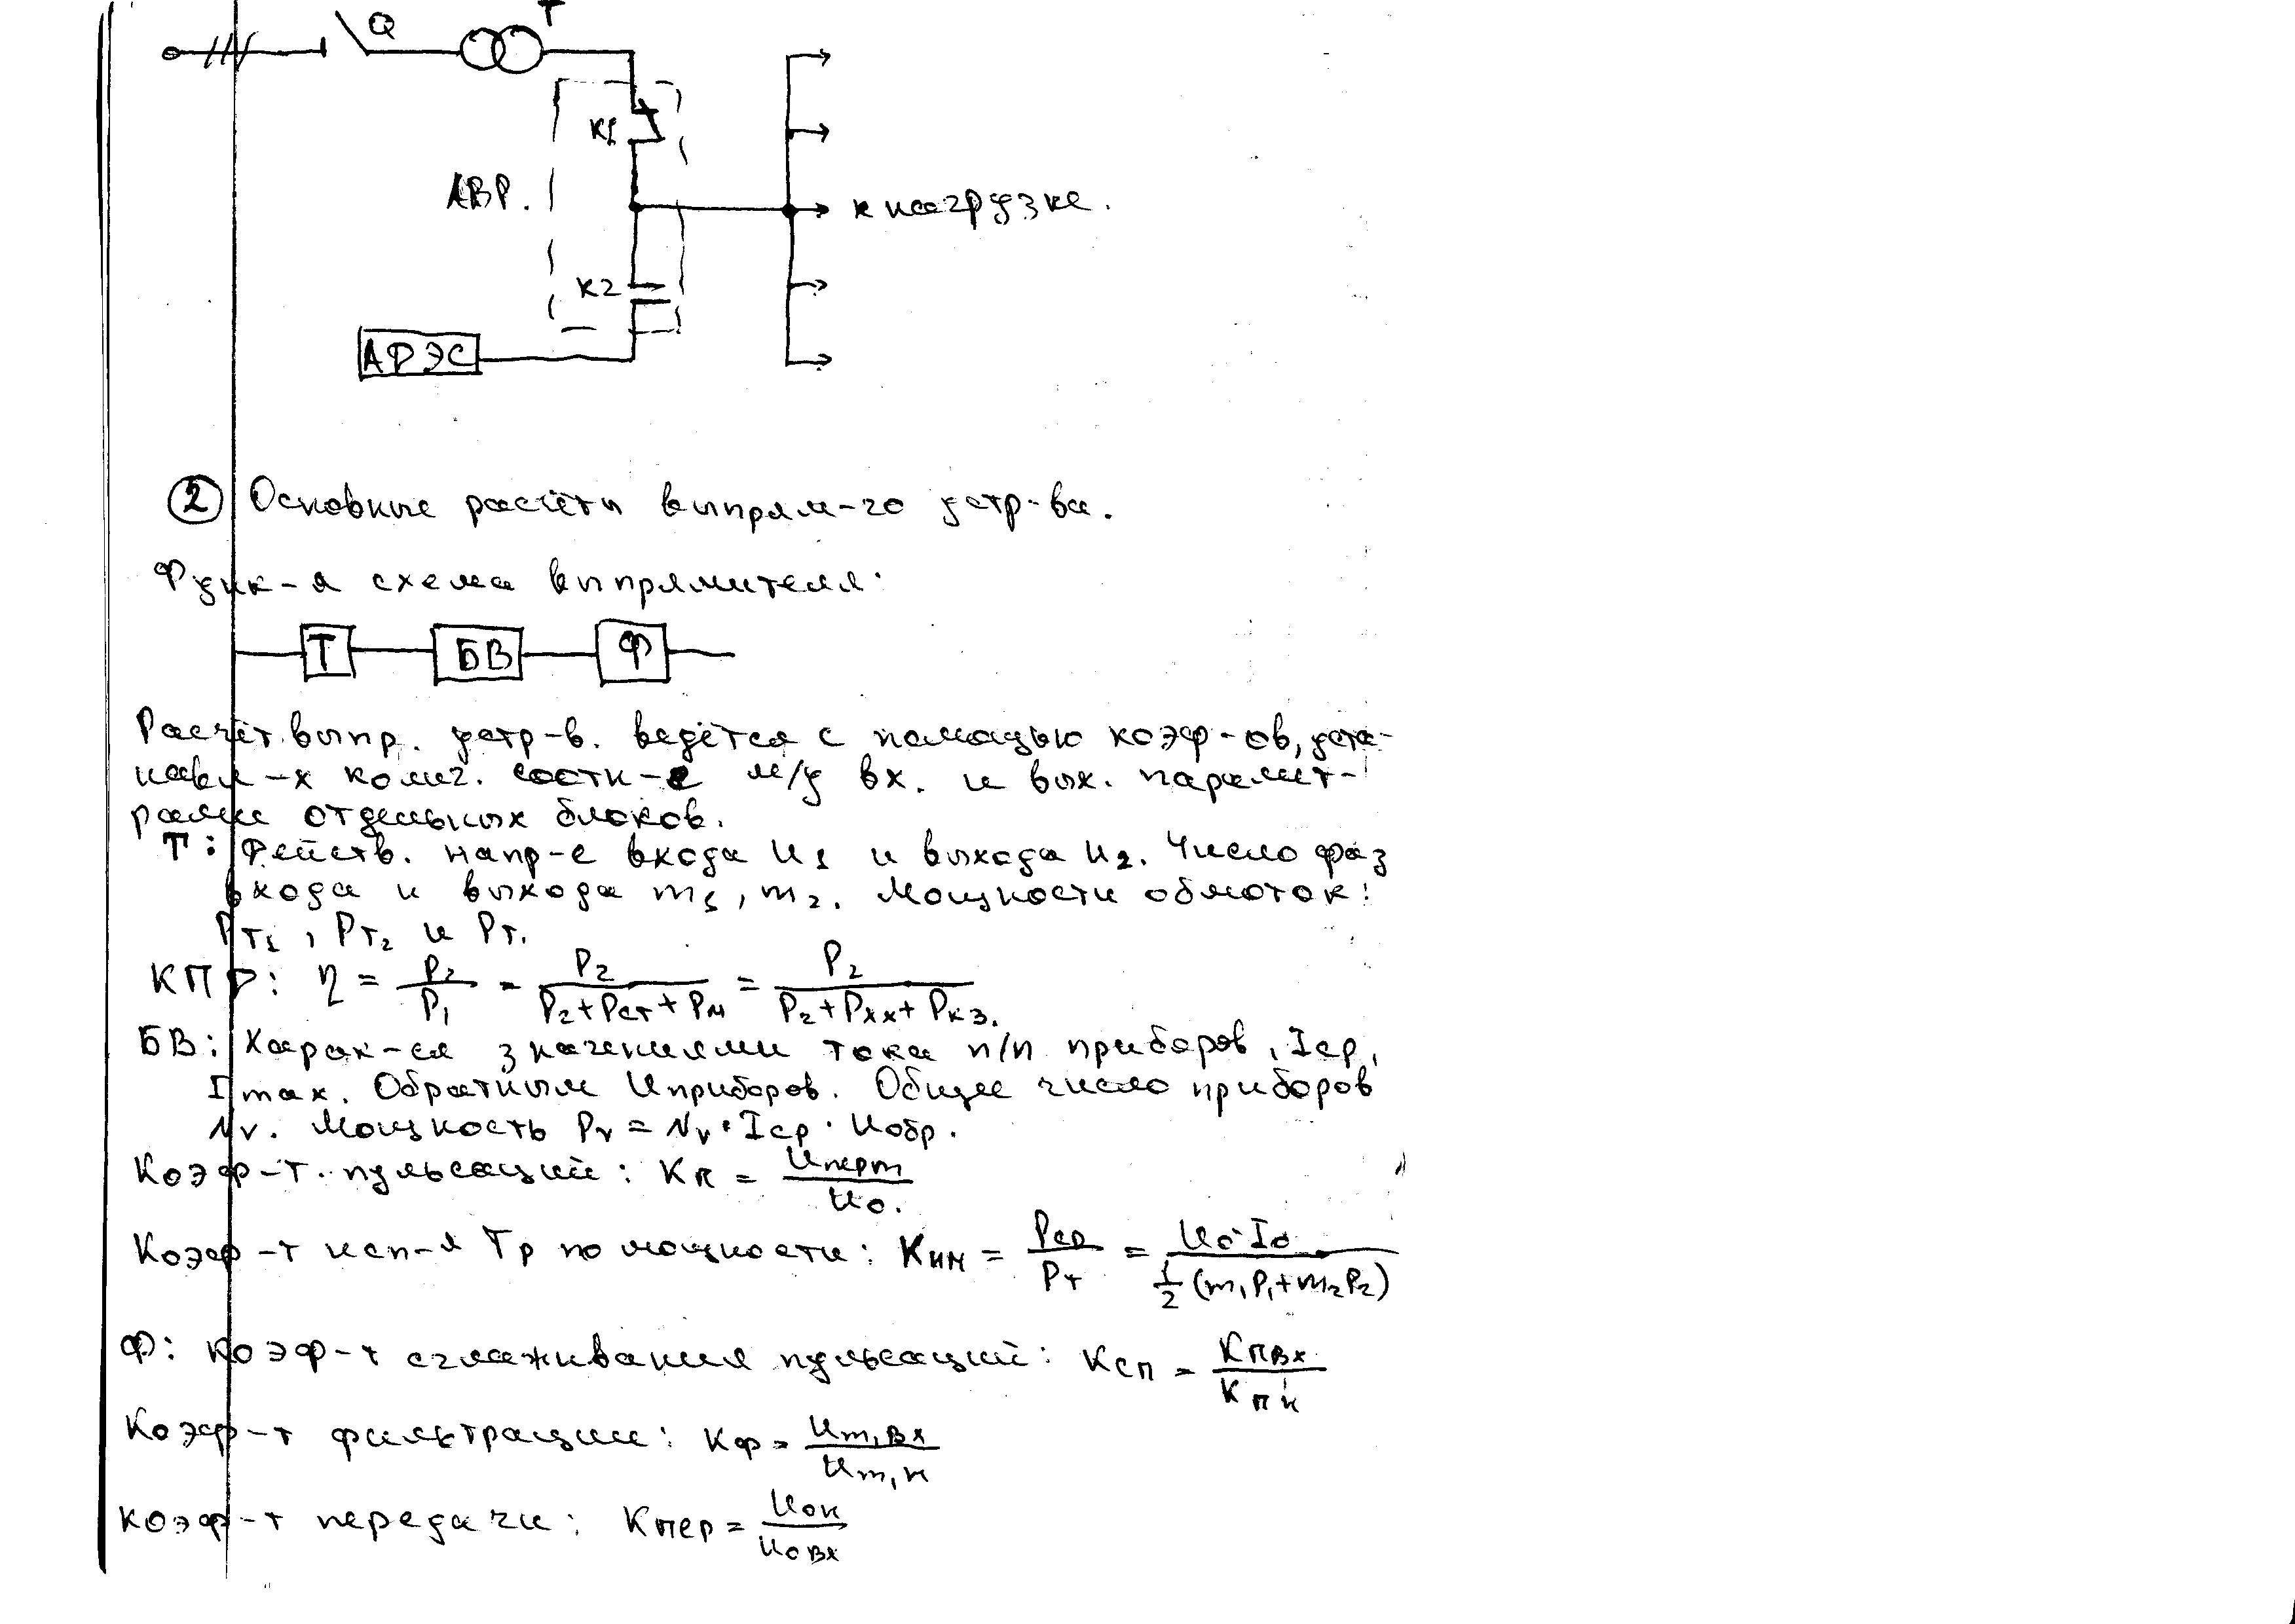 Q
T
К1
АВР.
к нагрузке.
К2
АДЭС
2 Основные расчёты выпрям-го устр-ва.
Функ-я схема выпрямителя:
Т БВ Ф
Расчёт выпр. устр-в. ведётся с помощью коэф-ов, уста-
навл-х колич. соотн-е м/у вх. и вых. парамет-
рами отдельных блоков.
Т: Действ. напр-е входа U1 и выхода U2. Число фаз
входа и выхода m1, m2. Мощности обмоток:
PТ1, PТ2 и PТ.
КПД: η = P2/P1 = P2/(P2+Pст+Pм) = P2/(P2+Pхх+Pкз.
БВ: Харак-ся значениями тока п/п приборов, Iср,
Imax. Обратным U приборов. Общее число приборов
Nv. Мощность Pv = Nv · Iср · Uобр.
Коэф-т. пульсаций: Kп = Uперm/U0.
Коэф-т исп-я Тр по мощности: Kим = Pср/Pт = U0·I0/(1/2 (m1P1+m2P2))
Ф: Коэф-т сглаживания пульсаций: Kсп = Kпвх/Kпн
Коэф-т фильтрации: Kф = Um,вх/Um,н
Коэф-т передачи: Kпер = U0н/U0вх